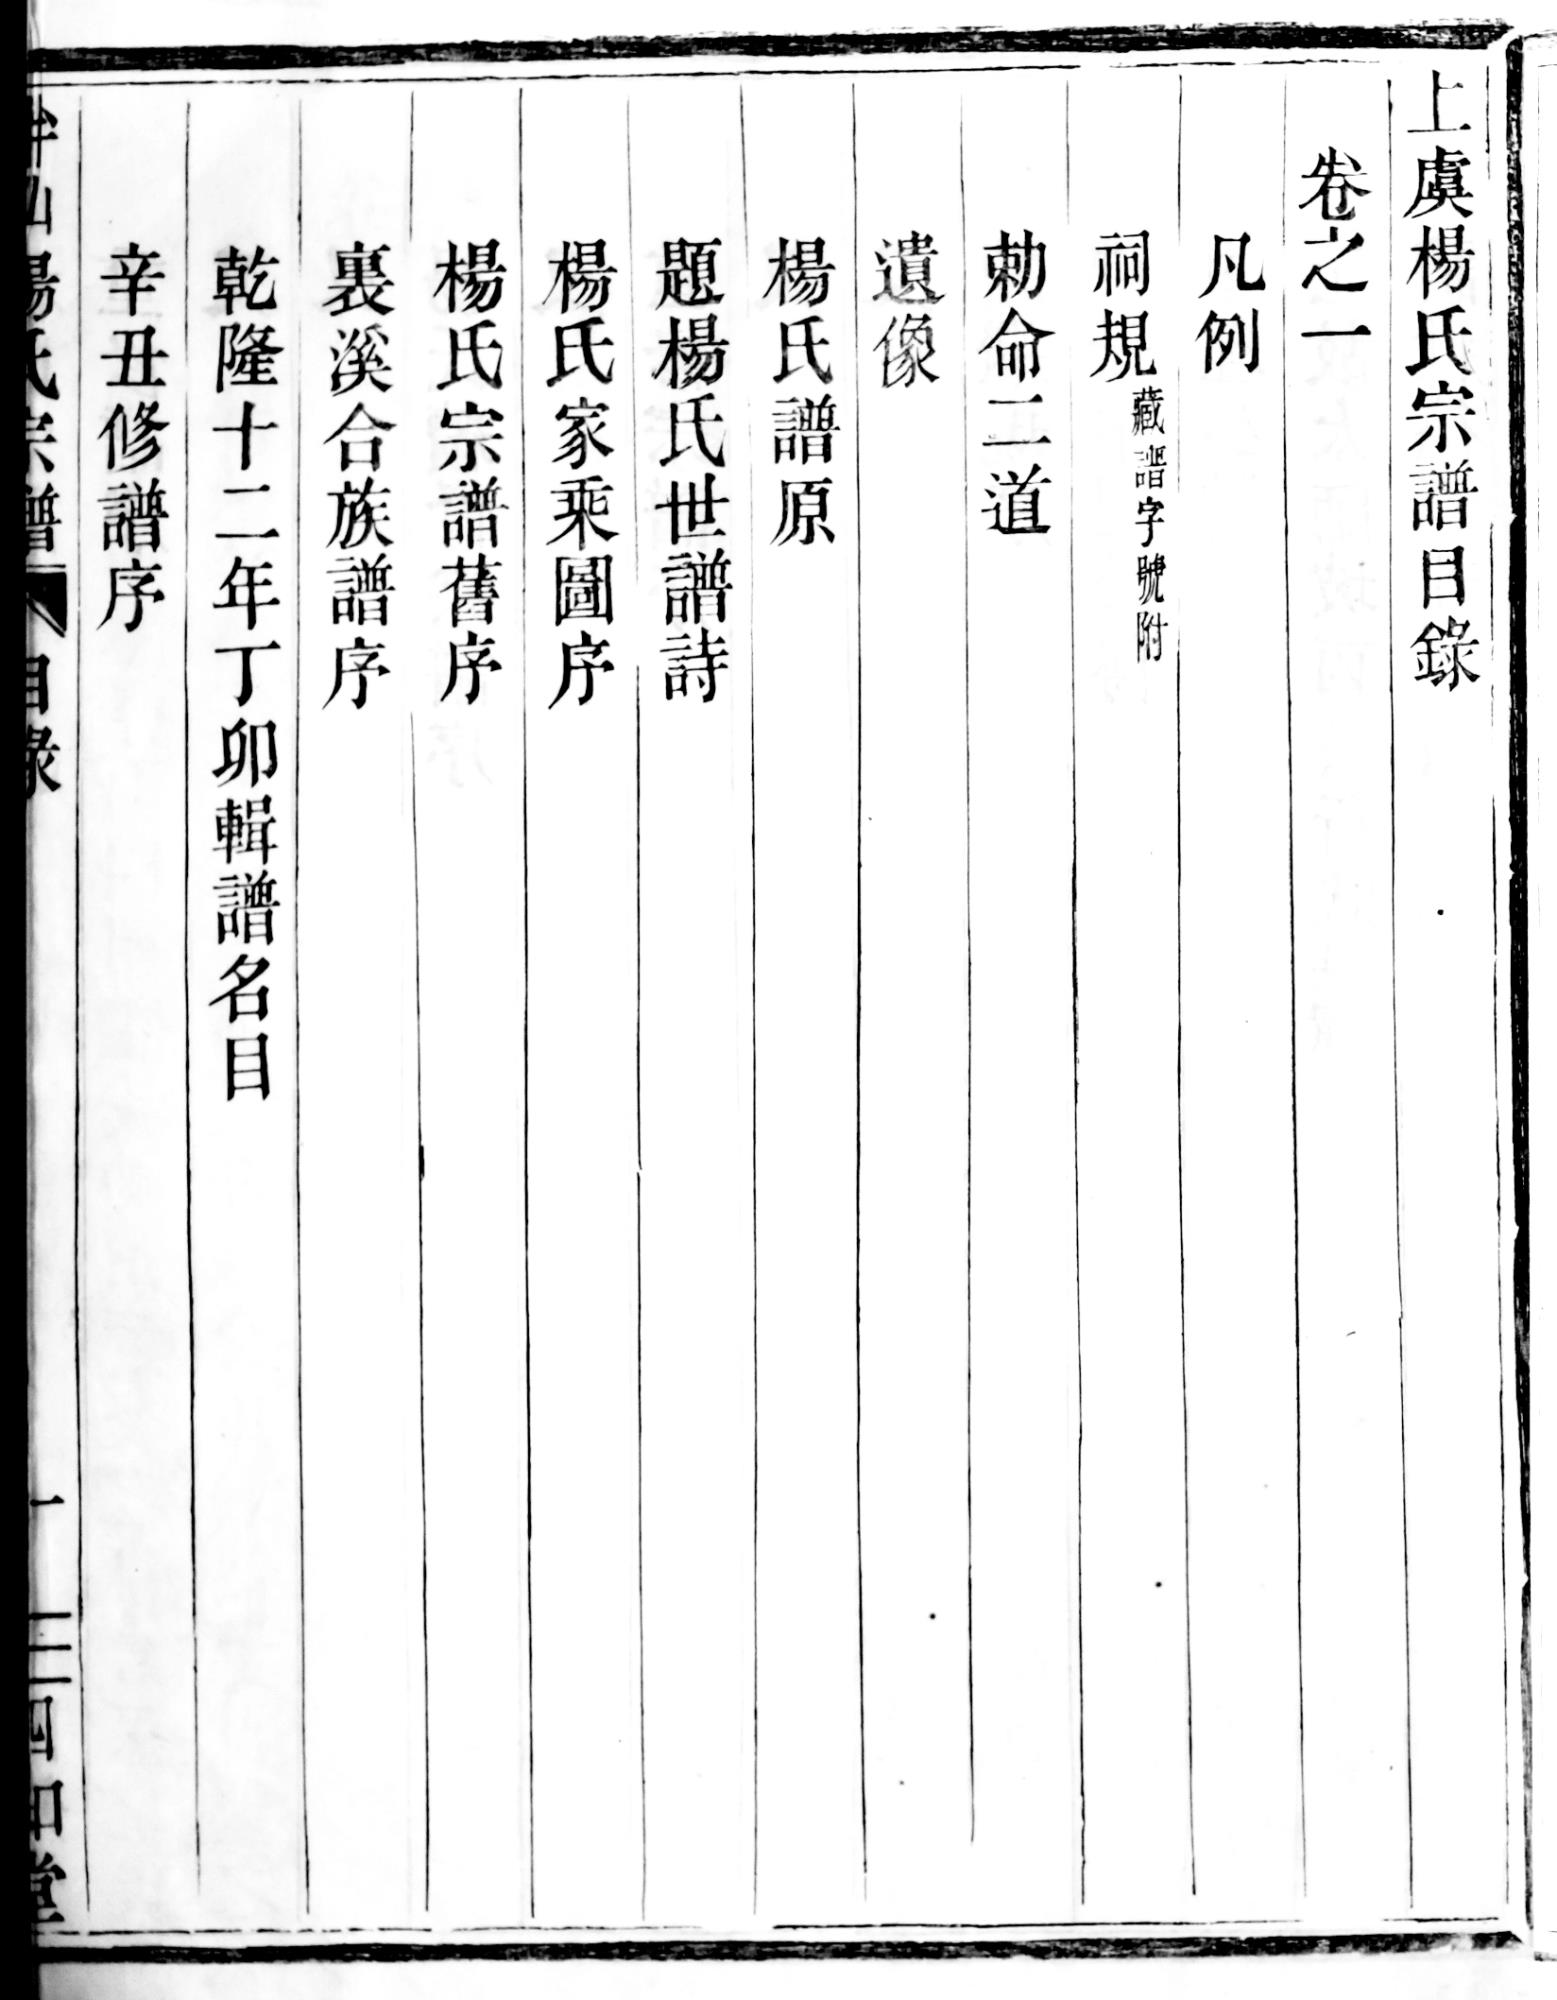 上虞楊氏宗譜目錄
卷之一
凡例
祠規藏譜字號附
勅命二道
遺像
楊氏譜原
題楊氏世譜詩
楊氏家乘圖序
楊氏宗譜舊序
裏溪合族譜序
乾隆十二年丁卯輯譜名目
辛丑修譜序
山楊氏宗譜 目錄 一 四知堂